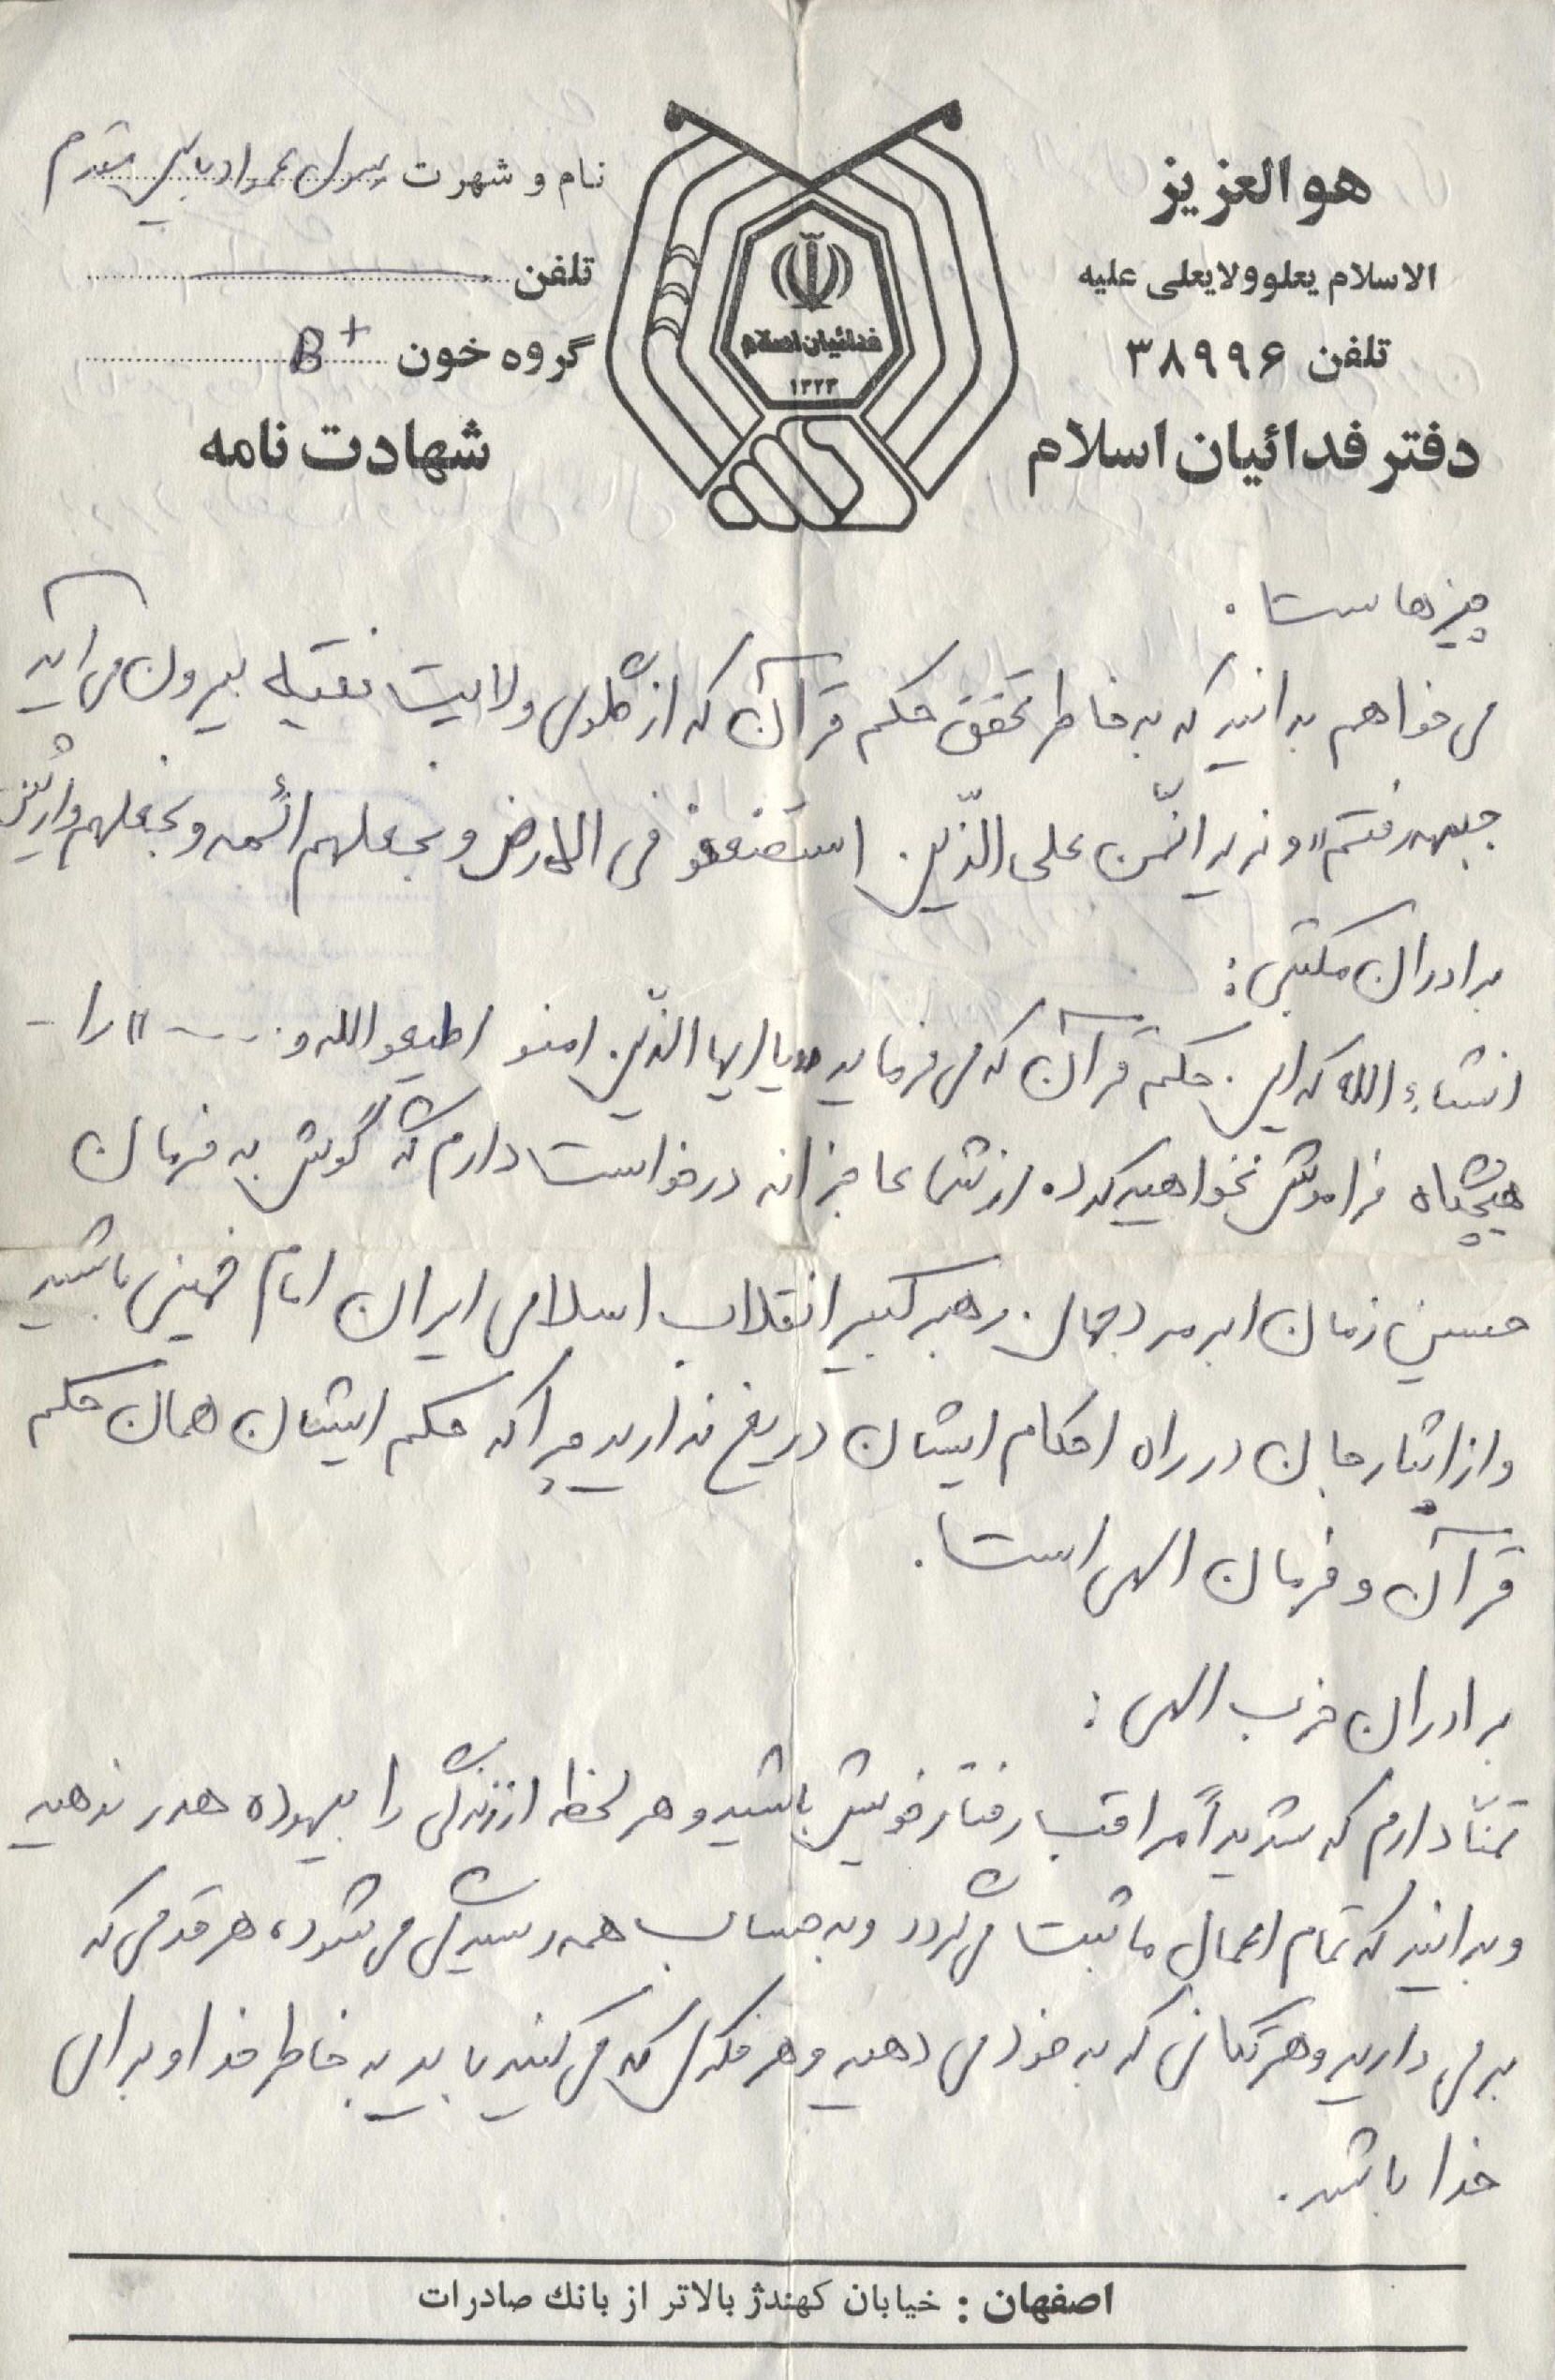 هوالعزیز
الاسلام یعلو ولایعلی علیه
تلفن ۳۸۹۹۶
دفتر فدائیان اسلام
فدائیان اسلام
۱۳۲۳
نام و شهرت رسول مقدم
تلفن
گروه خون B+
شهادت نامه
چیزهاست .
می خواهم بدانید که به خاطر تحقق حکم قرآن که از گلوی ولایت فقیه بیرون می آید
جبهه رفتم "و نرید انّمن علی الذّین استضعفو فی الارض و نجعلهم ائمه و نجعلهم وارثین
برادران مکتبی :
انشاءالله که این حکم قرآن که می فرماید "یا ایها الذّین امنو اطیعو الله و ....." را -
هیچگاه فراموش نخواهید کرد . از شما عاجزانه درخواست دارم که گوش به فرمان
حسین زمان ابرمرد جهان رهبر کبیر انقلاب اسلامی ایران امام خمینی باشید
و از ایثار جان در راه احکام ایشان دریغ ندارید چرا که حکم ایشان همان حکم
قرآن و فرمان الهی است .
برادران حزب الهی :
تمنّا دارم که شدیداً مراقب رفتار خویش باشید و هر لحظه از زندگی را بیهوده هدر ندهید
و بدانید که تمام اعمال ما ثبت می گردد و به حساب همه رسیدگی می شود ، هر قدمی که
بر می دارید و هر تکانی که به خود می دهید و هر فکری که می کنید باید به خاطر خدا و برای
خدا باشد .
اصفهان : خیابان کهندژ بالاتر از بانك صادرات